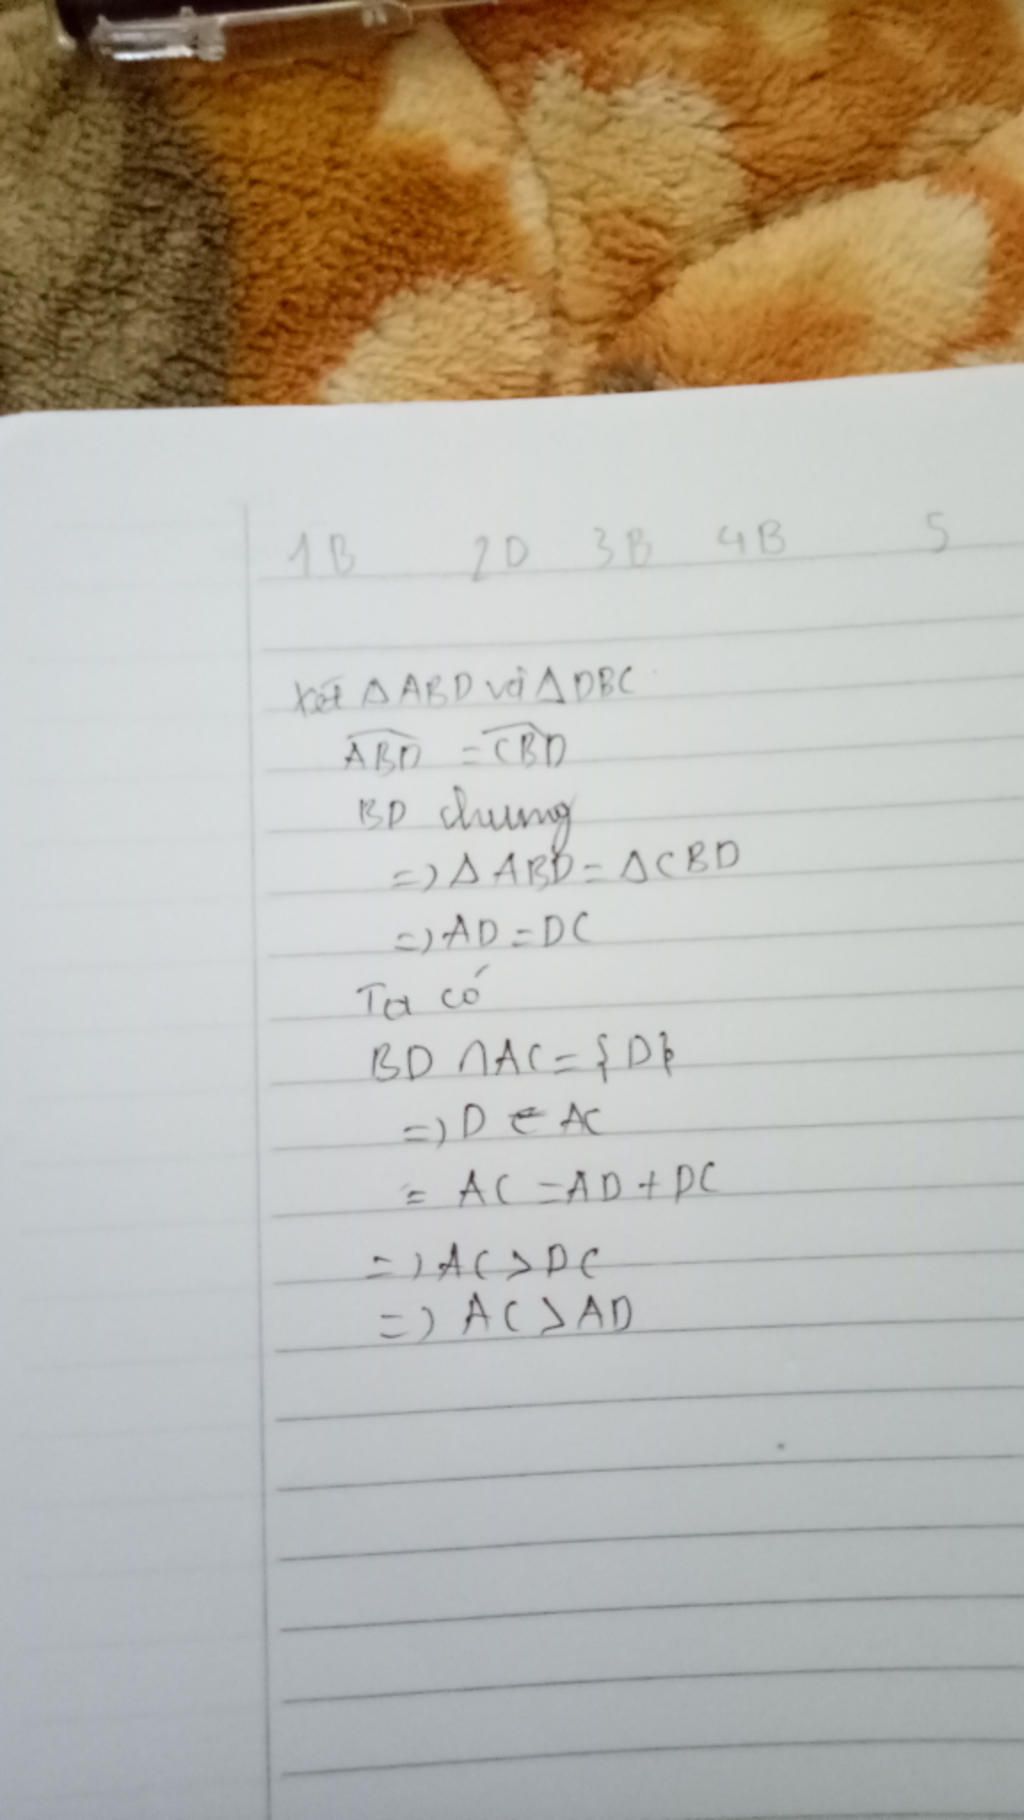 1B 2D 3B 4B 5
Xét ΔABD với ΔDBC
ABD = CBD
BD chung
=> ΔABD = ΔCBD
=> AD = DC
Ta có
BD ∩ AC = {D}
=> D ∈ AC
= AC = AD + DC
=> AC > DC
=> AC > AD